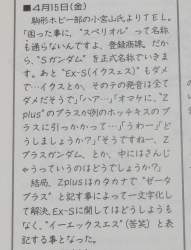 ■4月15日(金)
駒形ホビー部の小宮山氏よりTEL。
「困った事に、"スペリオル"って名称
も通らないんですよ、登録商標。だか
ら、"Sガンダム"を正式名称でいきま
す。あと"Ex-S(イクスェス)"もダメ
で…イクスとか、その手の発音は全て
ダメだそうで」「ハア…」「オマケに、"Z
plus"のプラスが例のホッチキスのプ
ラスに引っかかって…」「うわー」「ど
うしましょうか?」「そうですねー、Z
プラスガンダム、とか、中にはさんじ
ゃうっていうのはどうでしょうか?」
結局、Zplusはカタカナで"ゼータ
プラス"と記す事によって一文字化し
て解決。Ex-Sに関してはどうしようも
なく、"イーエックスエス"(苦笑)と表
記する事となった。